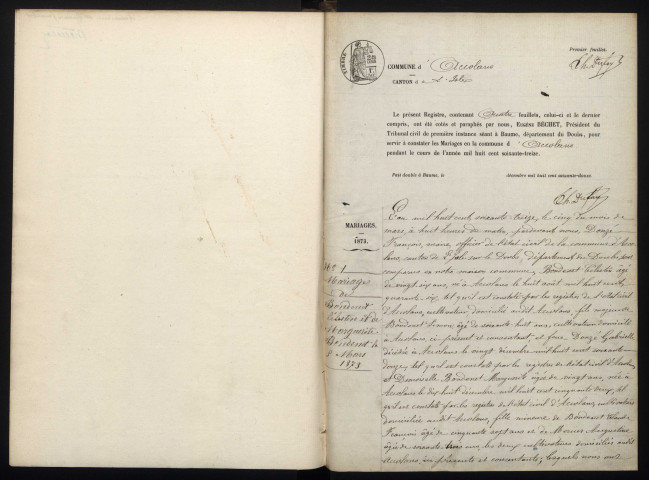 Premier feuillet.
COMMUNE d'Accolans
CANTON de L'Isle
Le présent Registre, contenant quatre feuillets, celui-ci et le dernier
compris, ont été cotés et paraphés par nous, Eugène BÉCHET, Président du
Tribunal civil de première instance séant à Baume, département du Doubs, pour
servir à constater les Mariages en la commune d'Accolans
pendant le cours de l'année mil huit cent soixante-treize.
Fait double à Baume, le décembre mil huit cent soixante-douze.
MARIAGES.
1873.
N° 1
Mariage
de
Bondenet
Célestin et de
Marguerite
Bondenet
Mars
1873
L'an mil huit cent soixante-treize, le cinq du mois de
mars, à huit heures du matin, pardevant nous, Donzé
François, maire, officier de l'état civil de la commune d'Acco
lans, canton de L'Isle sur le Doubs, département du Doubs, sont
comparus en notre maison commune, Bondenet Célestin âgé
de vingt six ans, né à Accolans le huit août mil huit cent
quarante six, tel qu'il est constaté par les registres de l'état civil
d'Accolans, cultivateur, domicilié audit Accolans, fils
Bondenet âgé de soixante huit ans, cultivateur domicilié
à Accolans, ici présent et consentant, et feue Donzé Gabrielle
décédée à Accolans le vingt décembre mil huit cent soixante
douze, tel qu'il est constaté par les registres de l'état civil d'Accolans
et Demoiselle Bondenet Marguerite âgée de vingt ans, née à
Accolans le dix huit décembre mil huit cent cinquante deux, tel
qu'il est constaté par les registres de l'état civil d'Accolans, cultivatrice
domiciliée audit Accolans, fille mineure de Bondenet
âgé de cinquante sept ans et de
âgée de soixante trois ans, les deux cultivateurs domiciliés audit
Accolans, ici présents et consentants; lesquels nous ont